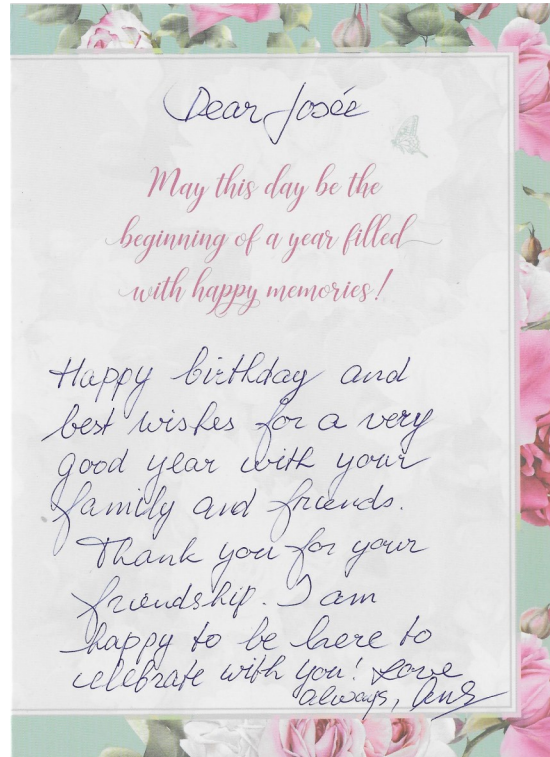 Dear Josée
May this day be the
beginning of a year filled
with happy memories!
Happy birthday and
best wishes for a very
good year with your
family and friends.
Thank you for your
friendship. I am
happy to be here to
celebrate with you! Love
always,